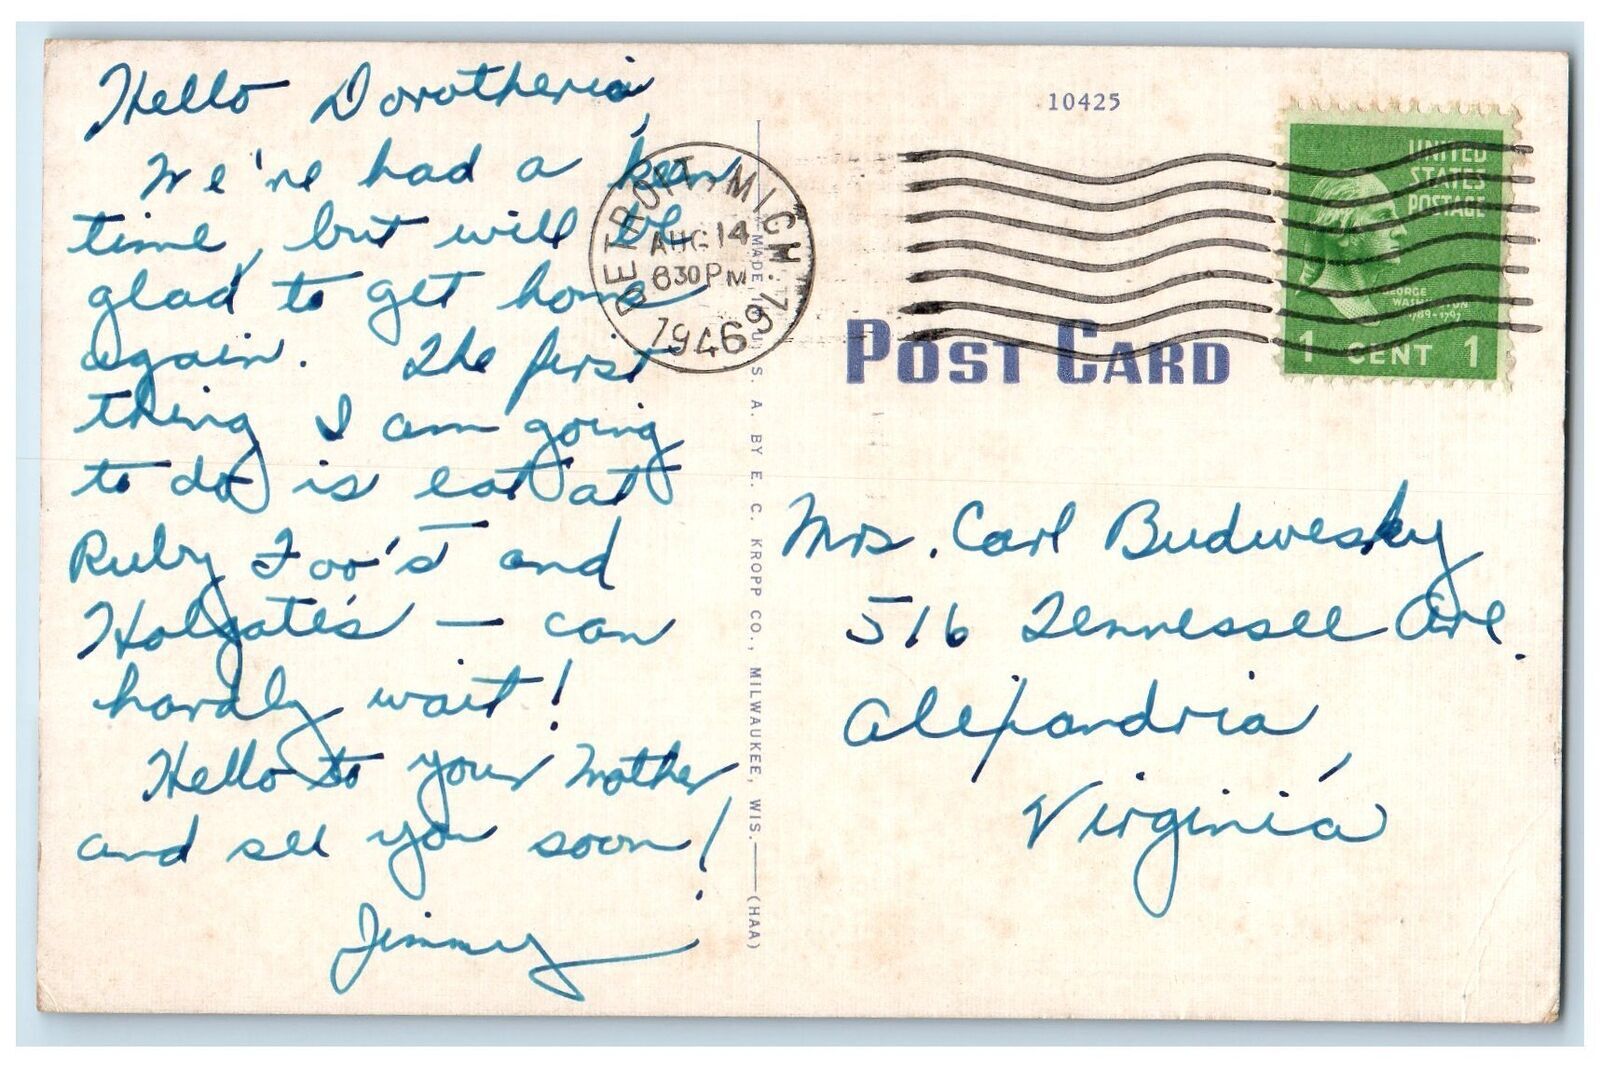 Hello Dorotheria,
We've had a keen
time, but will be
glad to get home
again. The first
thing I am going
to do is eat at
Ruby Foo's and
Holgate's — can
hardly wait!
Hello to your Mother
and see you soon!
Jimmy
DETROIT, MICH. 79
AUG 14
630 PM
1946
MADE IN U. S. A. BY E. C. KROPP CO., MILWAUKEE, WIS.—(HAA)
10425
POST CARD
UNITED
STATES
POSTAGE
GEORGE
WASHINGTON
1789-1797
1 CENT 1
Mrs. Carl Budwesky
516 Tennessee Ave.
Alexandria,
Virginia